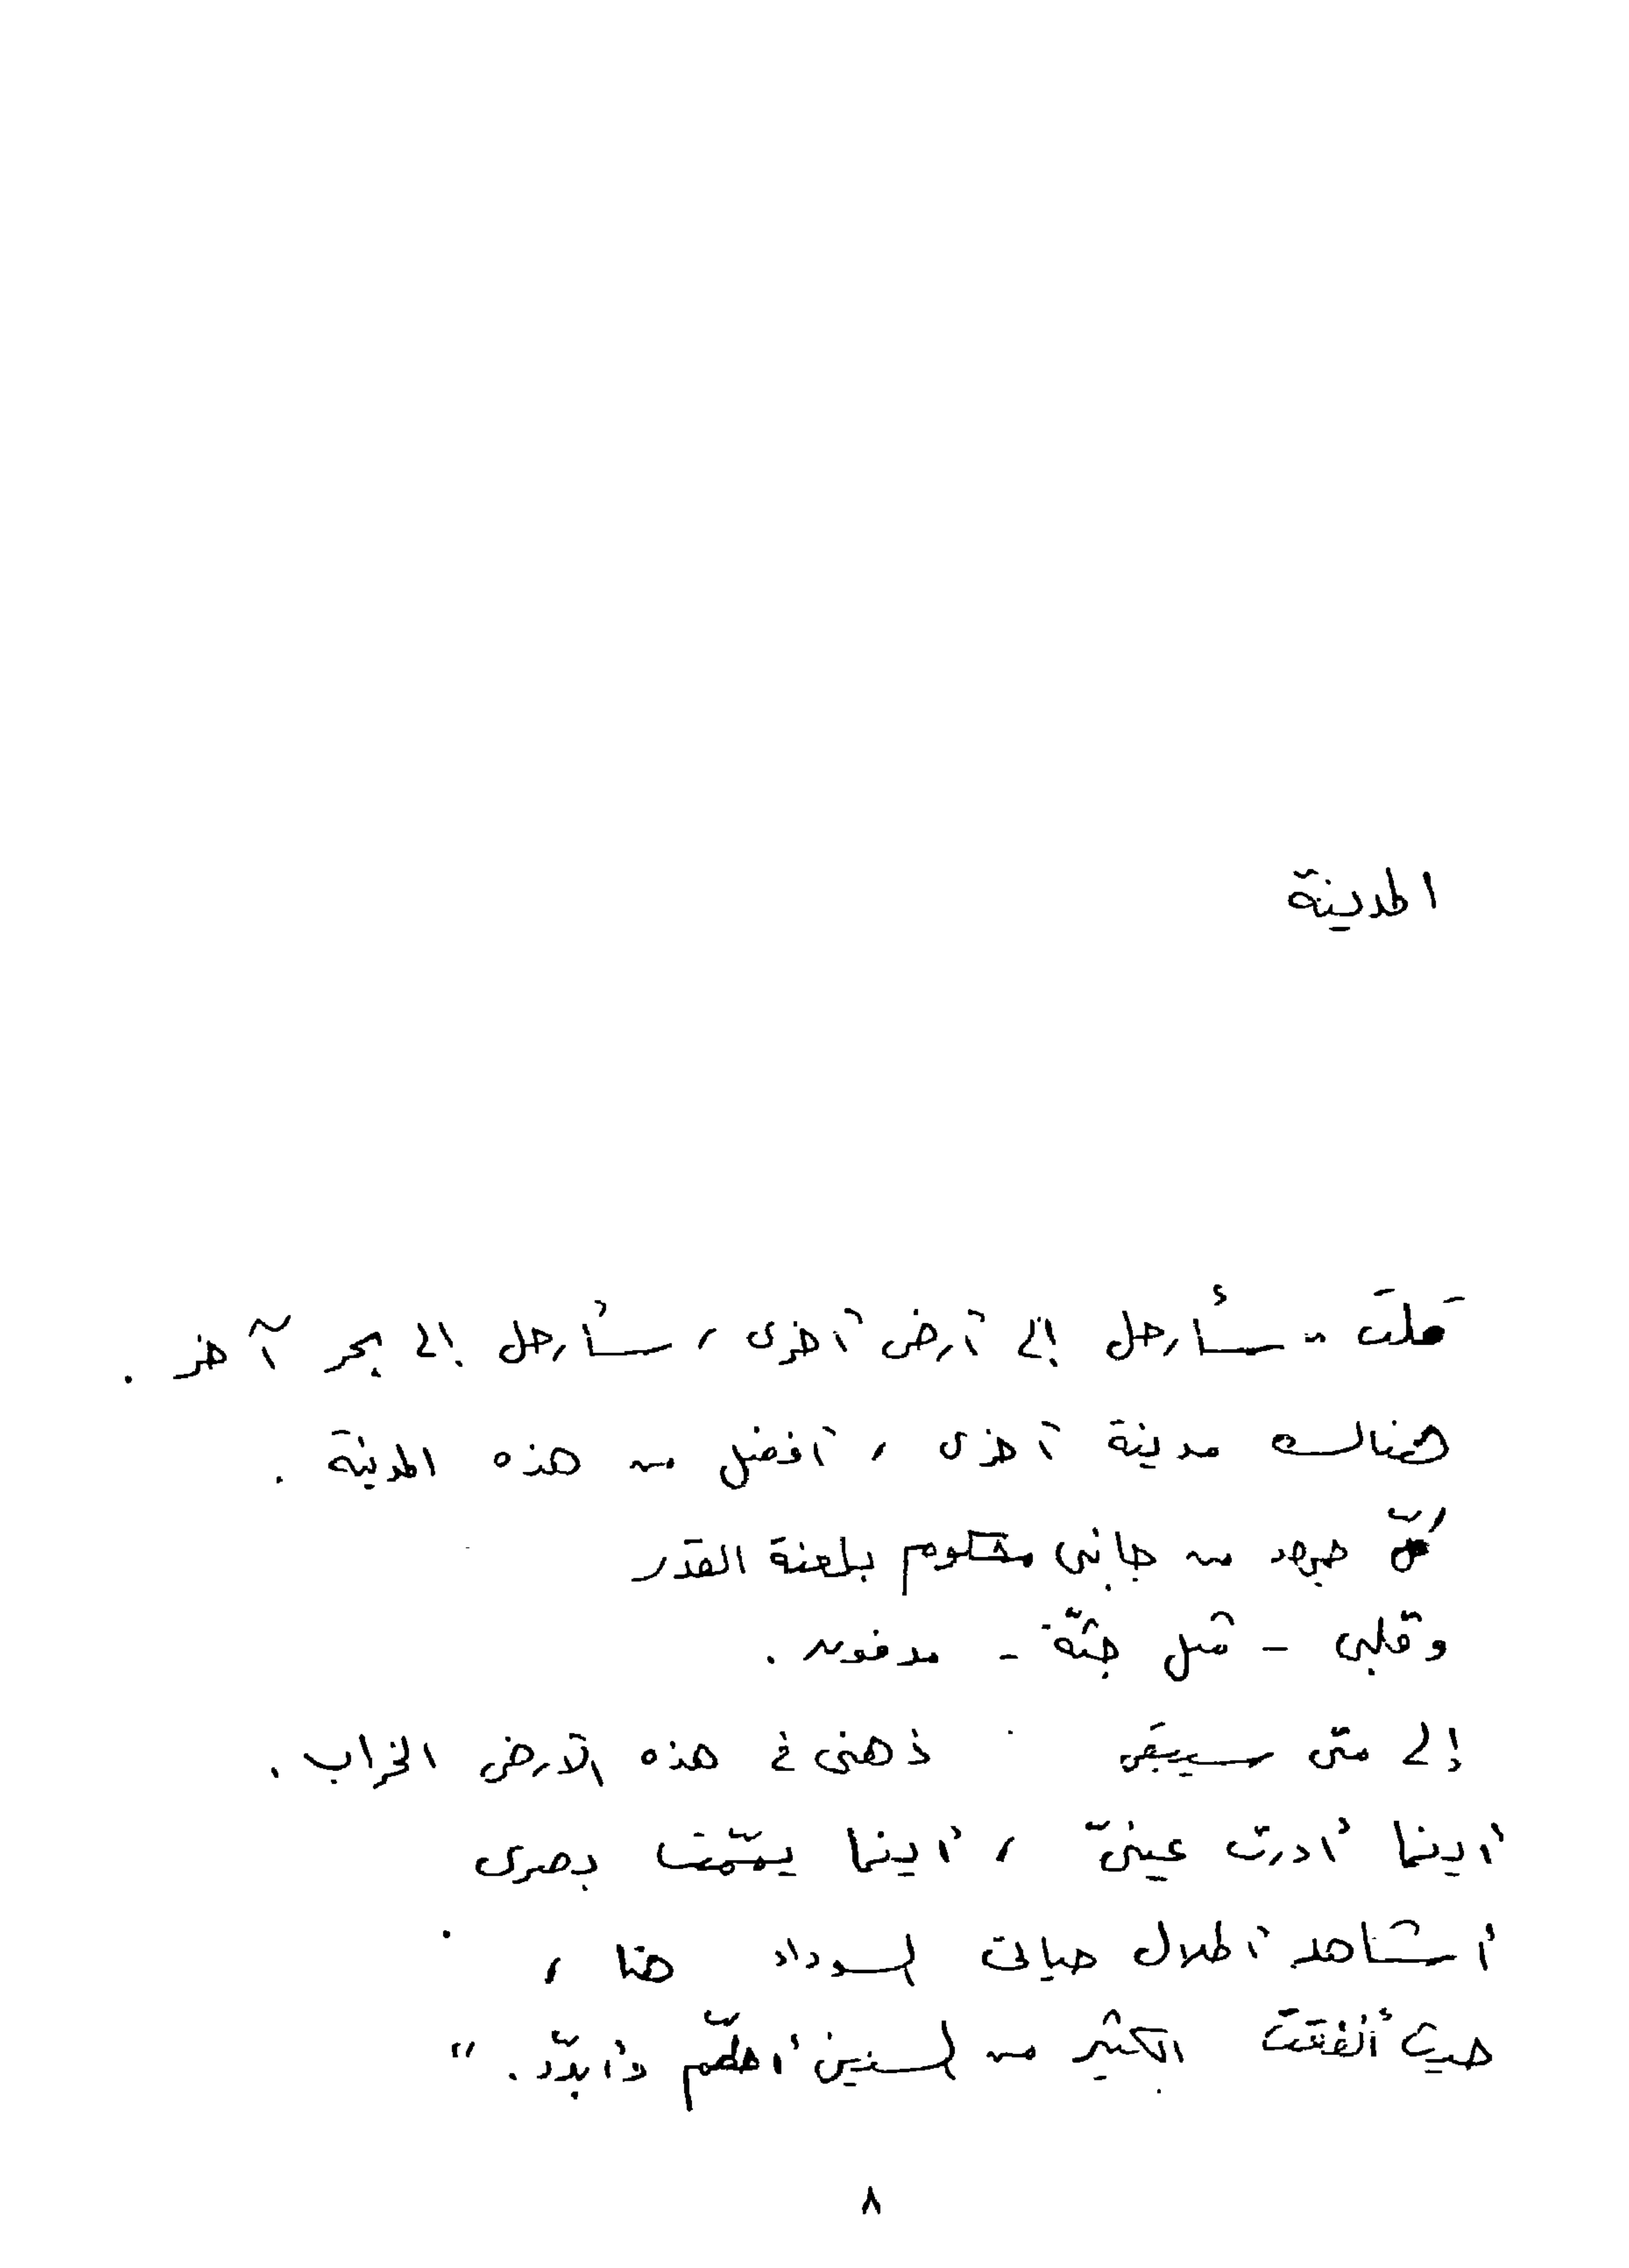 المدينة
قلتَ " سأرحل إلى أرض أخرى ، سأرحل إلى بحر آخر .
هناك مدينة أخرى ، أفضل من هذه المدينة .
كلّ جهد من جانبى محكوم بلعنة القدر
وقلبى - مثل جثّة - مدفون .
إلى متى سيبقى ذهنى فى هذه الأرض الخراب .
أينما أدرت عينىّ ، أينما يمّمت بصرى
أشاهد أطلال حياتى السوداء هنا ،
حيث أنفقت الكثير من السنين أحطّم وأبدّد . "
٨